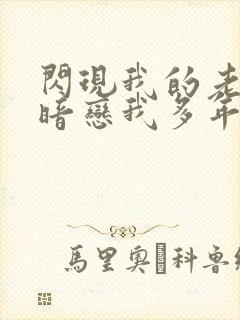 閃現我的老
暗戀我多年
馬里奧·科魯